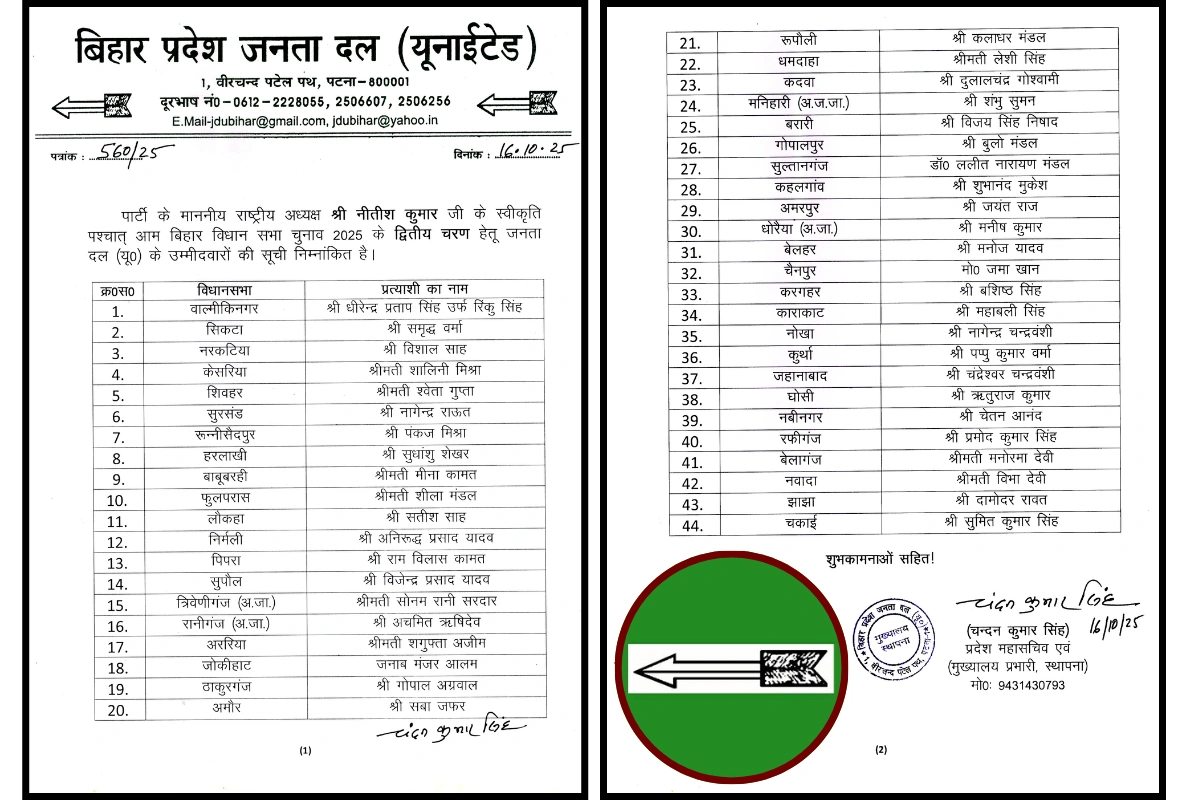 बिहार प्रदेश जनता दल (यूनाईटेड)
1, वीरचन्द पटेल पथ, पटना-800001
दूरभाष नं0-0612-2228055, 2506607, 2506256
E.Mail-jdubihar@gmail.com, jdubihar@yahoo.in
पत्रांक : 560/25 दिनांक : 16.10.25
पार्टी के माननीय राष्ट्रीय अध्यक्ष श्री नीतीश कुमार जी के स्वीकृति
पश्चात् आम बिहार विधान सभा चुनाव 2025 के द्वितीय चरण हेतू जनता
दल (यू0) के उम्मीदवारों की सूची निम्नांकित है।
क्र0स0 विधानसभा प्रत्याशी का नाम
1. वाल्मीकिनगर श्री धीरेन्द्र प्रताप सिंह उर्फ रिंकु सिंह
2. सिकटा श्री समृद्ध वर्मा
3. नरकटिया श्री विशाल साह
4. केसरिया श्रीमती शालिनी मिश्रा
5. शिवहर श्रीमती श्वेता गुप्ता
6. सुरसंड श्री नागेन्द्र राऊत
7. रून्नीसैदपुर श्री पंकज मिश्रा
8. हरलाखी श्री सुधांशु शेखर
9. बाबूबरही श्रीमती मीना कामत
10. फुलपरास श्रीमती शीला मंडल
11. लौकहा श्री सतीश साह
12. निर्मली श्री अनिरूद्ध प्रसाद यादव
13. पिपरा श्री राम विलास कामत
14. सुपौल श्री विजेन्द्र प्रसाद यादव
15. त्रिवेणीगंज (अ.जा.) श्रीमती सोनम रानी सरदार
16. रानीगंज (अ.जा.) श्री अचमित ऋषिदेव
17. अररिया श्रीमती शगुफ्ता अजीम
18. जोकीहाट जनाब मंजर आलम
19. ठाकुरगंज श्री गोपाल अग्रवाल
20. अमौर श्री सबा जफर
चंदन कुमार सिंह
(1)
21. रूपौली श्री कलाधर मंडल
22. धमदाहा श्रीमती लेशी सिंह
23. कदवा श्री दुलालचंद्र गोश्वामी
24. मनिहारी (अ.ज.जा.) श्री शंभु सुमन
25. बरारी श्री विजय सिंह निषाद
26. गोपालपुर श्री बुलो मंडल
27. सुल्तानगंज डॉ0 ललीत नारायण मंडल
28. कहलगांव श्री शुभानंद मुकेश
29. अमरपुर श्री जयंत राज
30. धोरैया (अ.जा.) श्री मनीष कुमार
31. बेलहर श्री मनोज यादव
32. चैनपुर मो0 जमा खान
33. करगहर श्री बशिष्ठ सिंह
34. काराकाट श्री महाबली सिंह
35. नोखा श्री नागेन्द्र चन्द्रवंशी
36. कुर्था श्री पप्पु कुमार वर्मा
37. जहानाबाद श्री चंद्रेश्वर चन्द्रवंशी
38. घोसी श्री ऋतुराज कुमार
39. नबीनगर श्री चेतन आनंद
40. रफीगंज श्री प्रमोद कुमार सिंह
41. बेलागंज श्रीमती मनोरमा देवी
42. नवादा श्रीमती विभा देवी
43. झाझा श्री दामोदर रावत
44. चकाई श्री सुमित कुमार सिंह
शुभकामनाओं सहित!
चंदन कुमार सिंह
16/10/25
बिहार प्रदेश जनता दल (यू0)
मुख्यालय
स्थापना
1, वीरचन्द पटेल पथ, पटना-1
(चन्दन कुमार सिंह)
प्रदेश महासचिव एवं
(मुख्यालय प्रभारी, स्थापना)
मो0: 9431430793
(2)